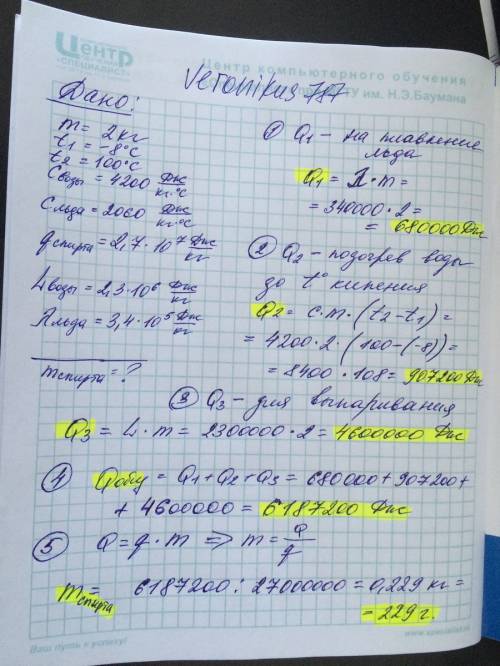 Центр
"СПЕЦИАЛИСТ"
Центр компьютерного обучения
ТУ им. Н.Э.Баумана
Veronikus 787
Дано:
m = 2 кг
t1 = -8°C
t2 = 100°C
Cводы = 4200 Дж/кг·°C
Cльда = 2060 Дж/кг·°C
qспирта = 2,7 · 10⁷ Дж/кг
Lводы = 2,3·10⁶ Дж/кг
λльда = 3,4 · 10⁵ Дж/кг
mспирта = ?
① Q1 – на плавление
льда
Q1 = λ · m =
= 340000 · 2 =
= 680000 Дж
② Q2 – подогрев воды
до t° кипения
Q2 = c · m · (t2 – t1) =
= 4200 · 2 · (100 – (-8)) =
= 8400 · 108 = 907200 Дж
③ Q3 – для выпаривания
Q3 = L · m = 2300000 · 2 = 4600000 Дж
④ Qобщ = Q1 + Q2 + Q3 = 680000 + 907200 +
+ 4600000 = 6187200 Дж
⑤ Q = q · m => m = Q/q
mспирта = 6187200 : 27000000 = 0,229 кг =
= 229 г.
Ваш путь к успеху!